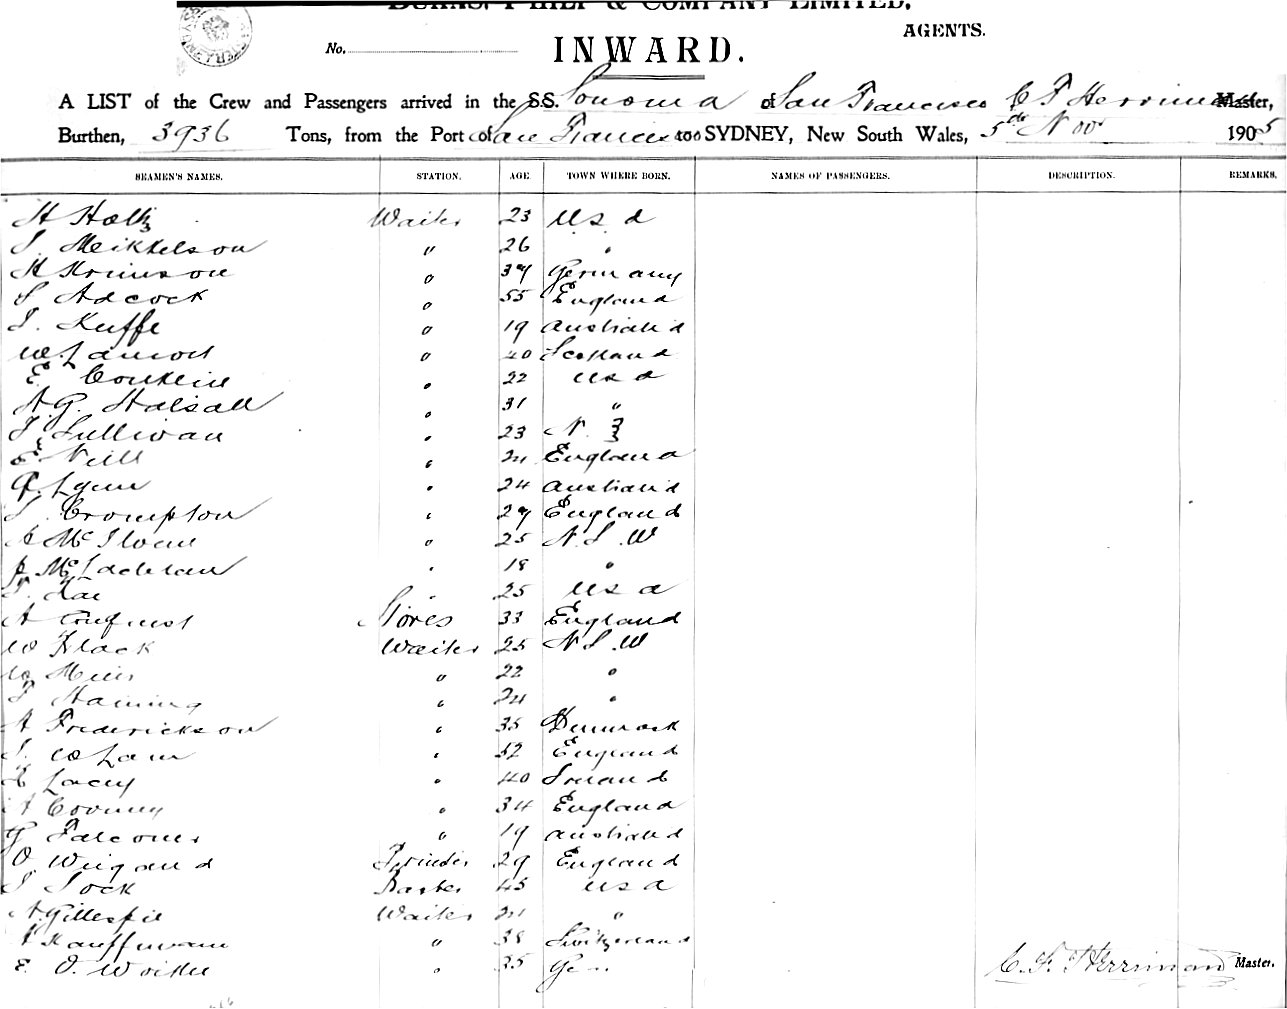 BURNS, PHILP & COMPANY LIMITED,
AGENTS.
No.
INWARD.
A LIST of the Crew and Passengers arrived in the S.S. Sonoma of San Francisco C F Herriman Master,
Burthen, 3936 Tons, from the Port of San Francisco to SYDNEY, New South Wales, 5th Nov 1905
SEAMEN'S NAMES. STATION. AGE TOWN WHERE BORN. NAMES OF PASSENGERS. DESCRIPTION. REMARKS.
H Holtz Waiter 23 U S A
Meikkelson " 26 "
H " 37 Germany
S Adcock " 55 England
19 Australia
W. Lamont " 40 Scotland
E. Conklin " 22 U S A
A. G. Halsall " 31 "
T Sullivan " 23 N. Z
E Neill " 21 England
Lynn " 24 Australia
Crompton " 27 England
" 25 N. S. W
McLachlan " 18 "
25 U S A
A Stores 33 England
W Black Waiter 25 N S W
W Muir " 22 "
24 "
A Frederickson " 35 Denmark
52 England
Lacey " 40 Ireland
34 England
G Falconer " 19 Australia
O Weigand Printer 29 England
Barber 45 U S A
A. Gillespie Waiter 21 "
Kauffmann " 38 Switzerland
E. O. " 35 Ger
C. F. Herriman Master.